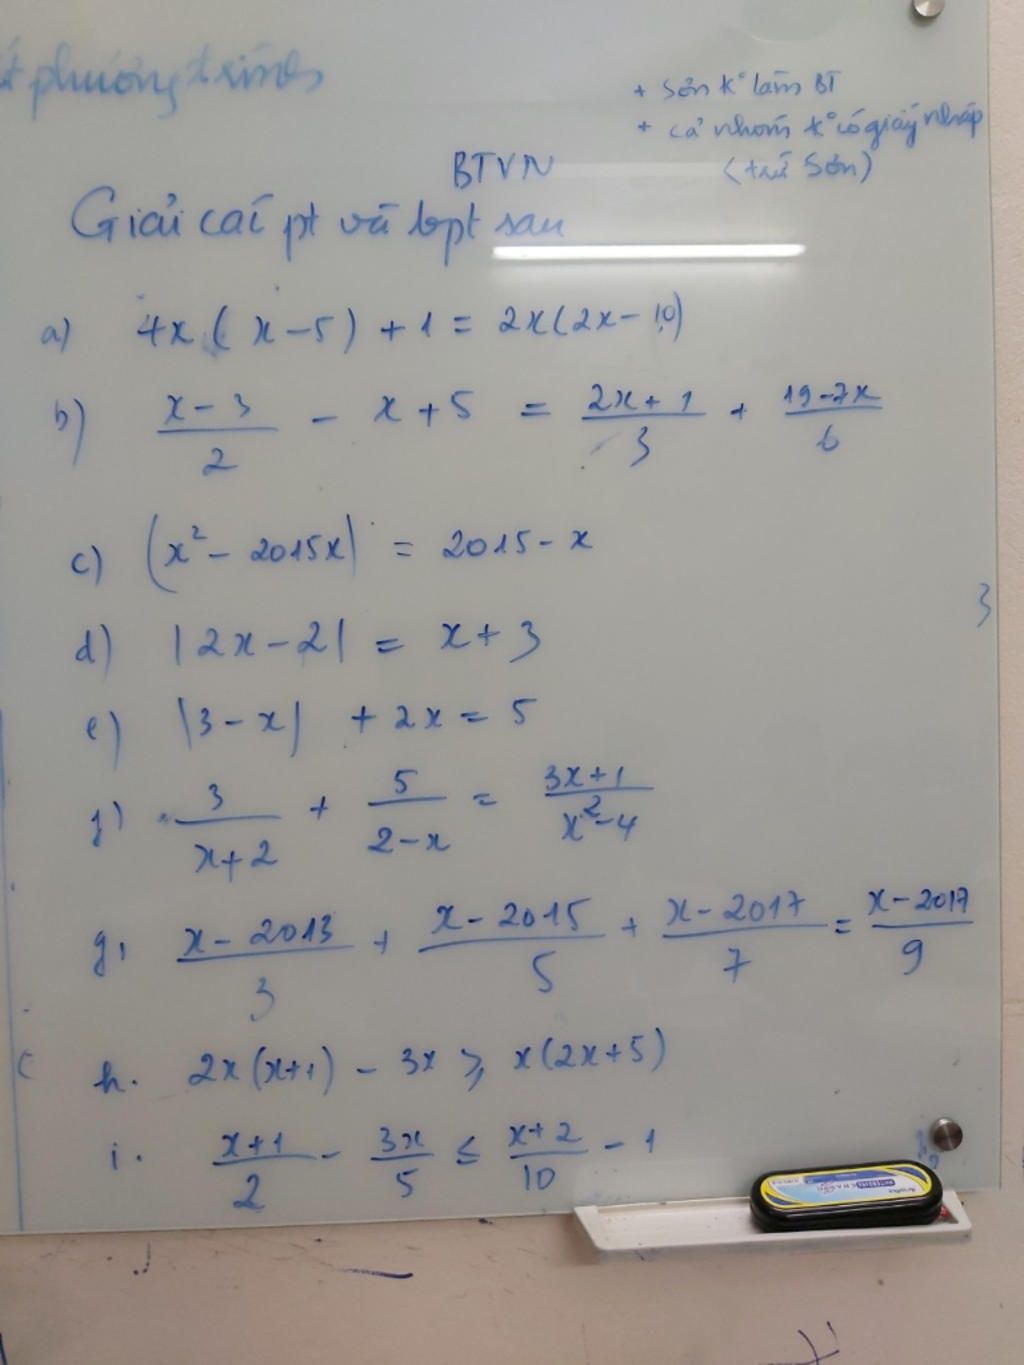 phương trình
+ Sơn k° làm BT
+ cả nhóm k° có giấy nháp
(trừ Sơn)
BTVN
Giải các pt và bpt sau
a) 4x(x-5)+1 = 2x(2x-10)
b) \frac{x-3}{2} - x+5 = \frac{2x+1}{3} + \frac{19-7x}{6}
c) (x² - 2015x| = 2015-x
d) |2x-2| = x+3
e) |3-x| + 2x = 5
f) \frac{3}{x+2} + \frac{5}{2-x} = \frac{3x+1}{x²-4}
g, \frac{x-2013}{3} + \frac{x-2015}{5} + \frac{x-2017}{7} = \frac{x-2017}{9}
h. 2x(x+1) - 3x ≥ x(2x+5)
i. \frac{x+1}{2} - \frac{3x}{5} ≤ \frac{x+2}{10} - 1
3